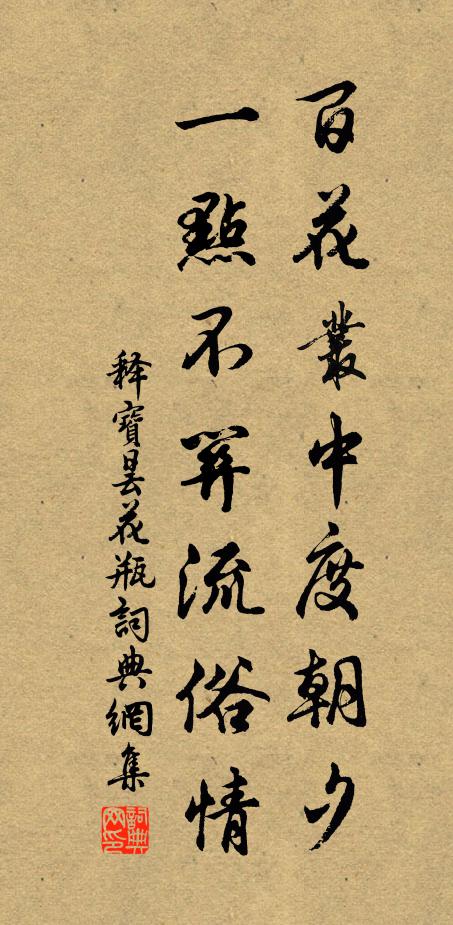 百花叢中度朝夕
一點不流俗情
释寶曇花瓶詞典網集
詞典
网印